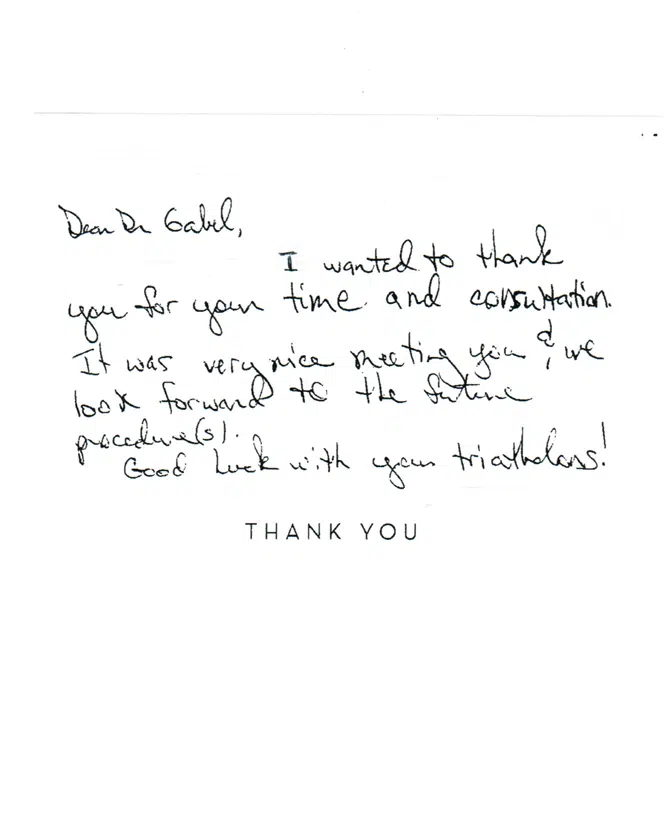 Dear Dr Gabel,
I wanted to thank
you for your time and consultation.
It was very nice meeting you & we
look forward to the future
procedure(s).
Good luck with your triathalons!
THANK YOU